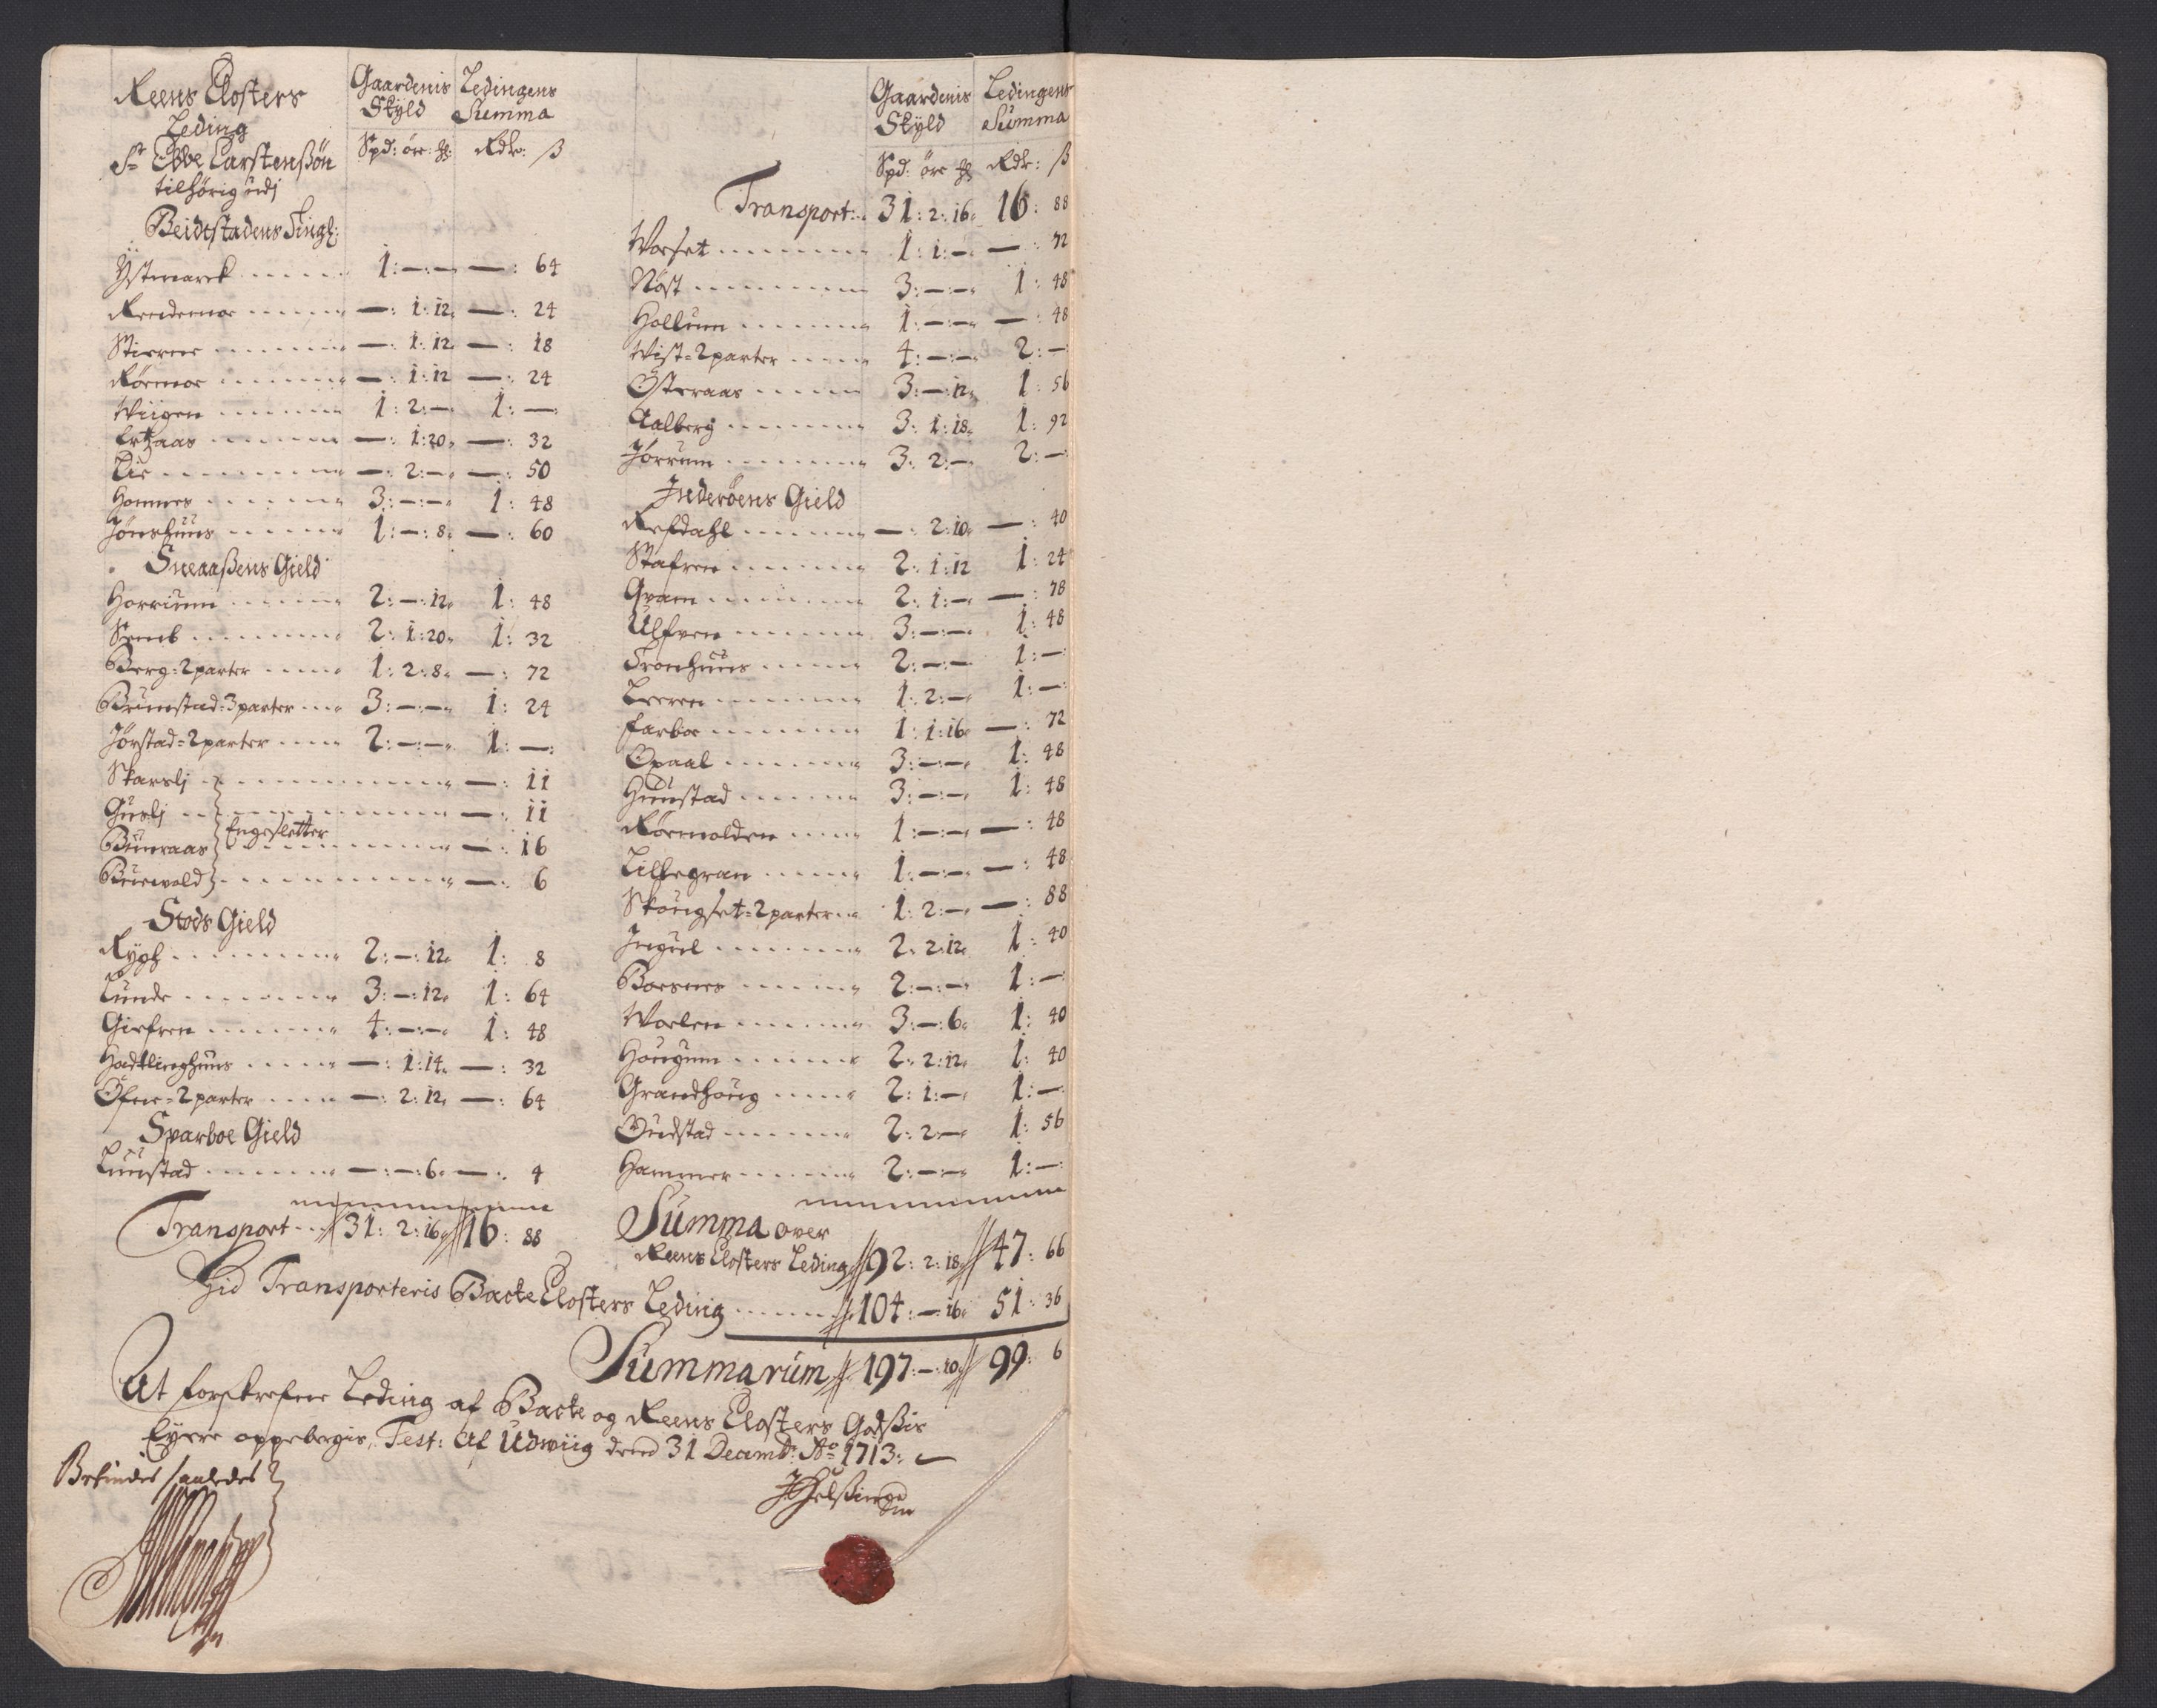 Reens Closters
Leding
Sr Ebbe Carstenßøn
tilhørig udj
Beidstadens Tingl:
Gaardenis Skyld
Ledingens Summa
Spd: öre: Rdr: ß
Ystmarck 1:—:— —: 64
Rendemoe —: 1: 12 —: 24
Stirene —: 1: 12 —: 18
Rörmoe —: 1: 12 —: 24
Wiigen 1: 2:— 1:—:
Ertzaas —: 1: 20 —: 32
Lie —: 2:— —: 50
Homnes 3:—:— 1: 48
Jönshuus 1:—: 8 —: 60
Sneaaßens Gield
Horrium 2:—: 12 1: 48
Semb 2: 1: 20 1: 32
Berg=2 parter 1: 2: 8 —: 72
Brunstad=3 parter 3:—:— 1: 24
Jörstad=2 parter 2:—:— 1:—:
Skarslj —: 11
Guslj —: 11
Engesletter
Bunraas —: 16
Buevold —: 6
Stods Gield
Rygh 2:—: 12 1: 8
Lunde 3:—: 12 1: 64
Giefren 4:—:— 1: 48
Hadklinghuus —: 1: 14 —: 32
Öfne=2 parter —: 2: 12 —: 64
Sparboe Gield
Luustad —:—: 6 —: 4
Transport 31: 2: 16 16: 88
Gaardenis Skyld
Ledingens Summa
Spd: öre Rdr: ß
Transport: 31: 2: 16 16: 88
Worset 1: 1:— —: 72
Nöst 3:—:— 1: 48
Hollum 1:—:— —: 48
Wist=2 parter 4:—:— 2:—
Österaas 3:—: 12 1: 56
Aalberg 3: 1: 18 1: 92
Jörrum 3: 2:— 2:—:
Inderöens Gield
Refdahl —: 2: 10 —: 40
Stafren 2: 1: 12 1: 24
Qvam 2: 1:— —: 78
Ulfven 3:—:— 1: 48
Tronhuus 2:—:— 1:—:
Leeren 1: 2:— 1:—:
Farboe 1: 1: 16 —: 72
Opaal 3:—:— 1: 48
Huustad 3:—:— 1: 48
Rörmolden 1:—:— —: 48
Lillegran 1:—:— —: 48
Skougset=2 parter 1: 2:— —: 88
Ingul 2: 2: 12 1: 40
Boesnes 2:—:— 1:—:
Worlen 3:—: 6 1: 40
Hougum 2: 2: 12 1: 40
Grandhoug 2: 1:— 1:—:
Oudstad 2: 2:— 1: 56
Hammer 2:—:— 1:—:
Summa over
Reens Closters Leding 92: 2: 18 47: 66
Hid Transporteris Backe Closters Leding 104:—: 16 51: 36
Summarum 197:—: 10 99: 6
At forskrefne Leding af Backe og Reens Closters Godßis
Eyere oppebergis, Test: Af Udwiig dend 31 Decemb: Ao 1713:
Bekindes saaledes